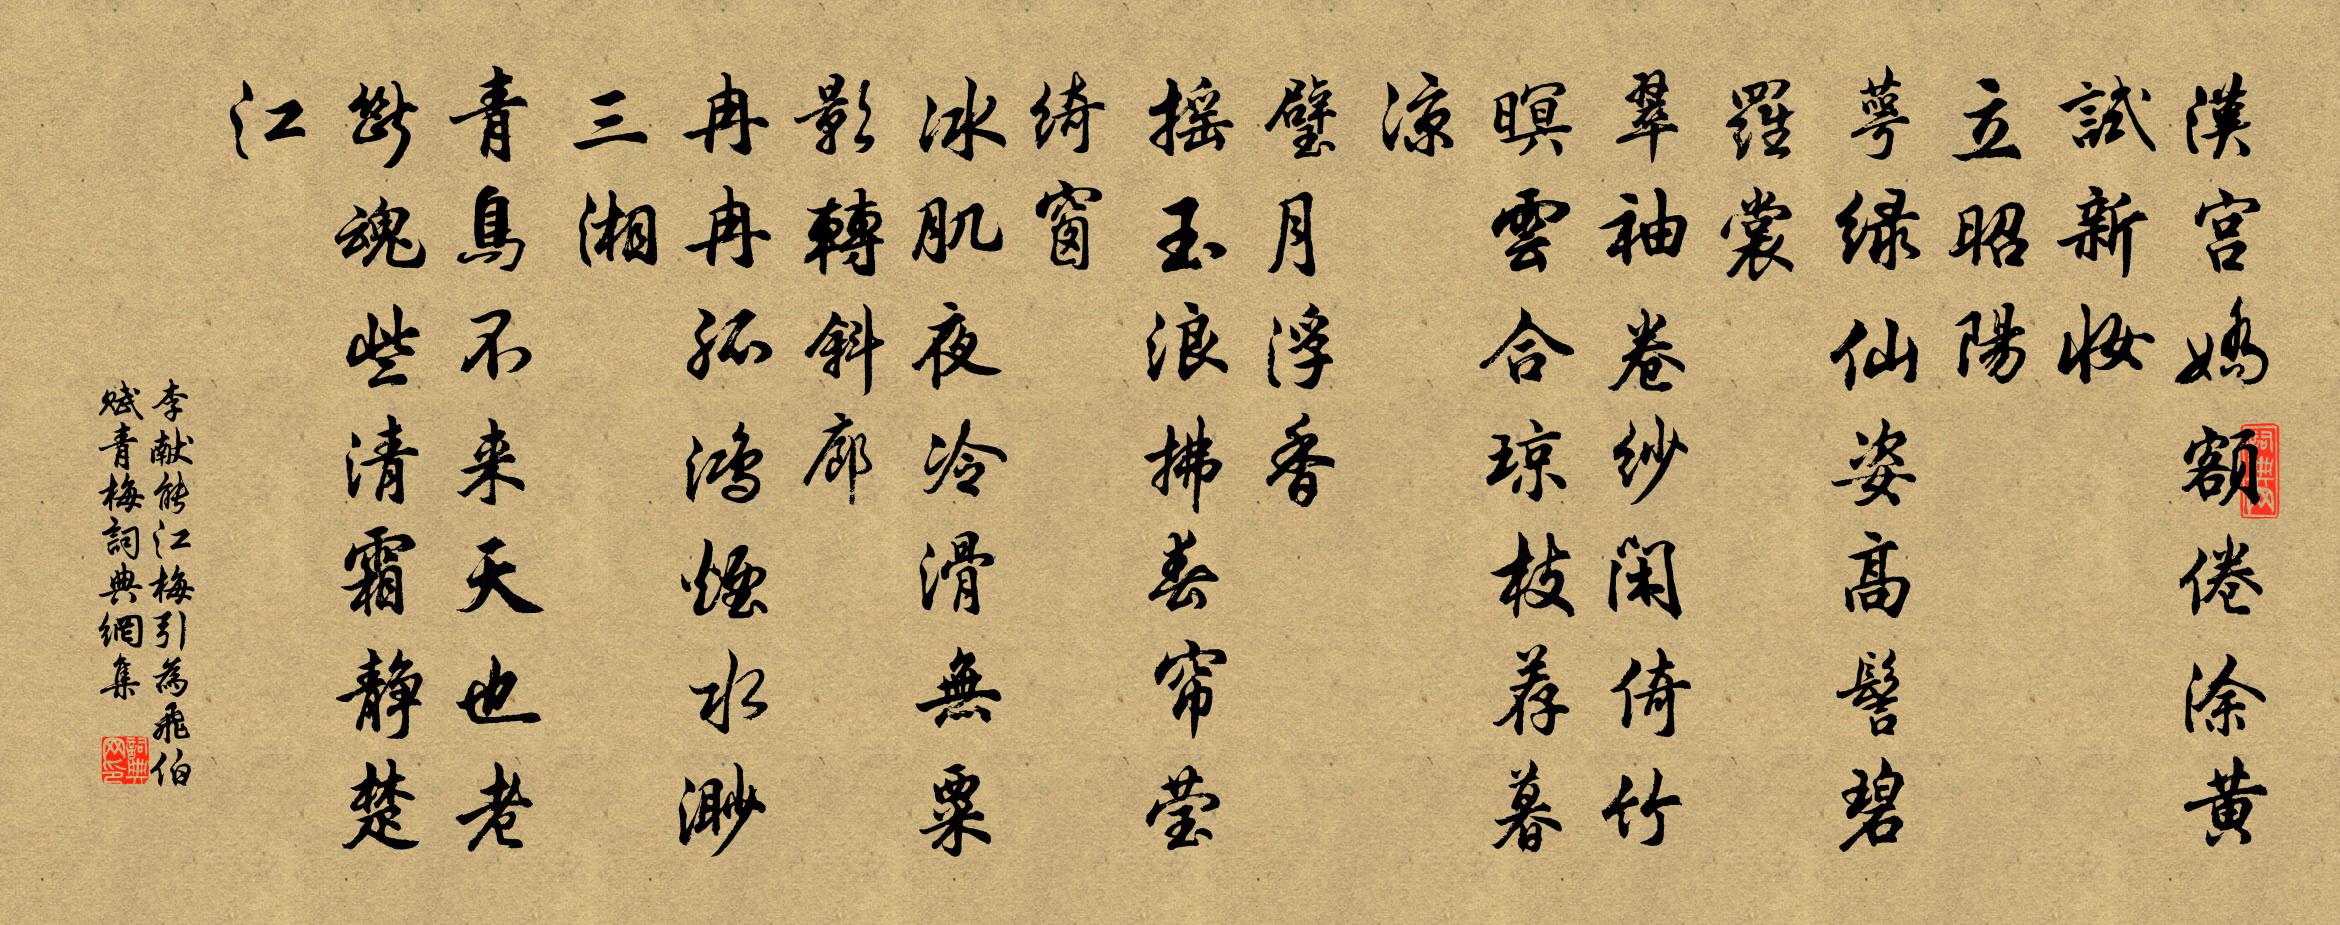 漢宮嬌額倦涂黄
試新妝
立昭陽
萼绿仙姿高髻碧
羅裳
翠袖卷紗閑倚竹
暝雲合琼枝荐暮
涼
璧月浮香
摇玉浪拂春帘莹
绮窗
冰肌夜冷滑無粟
影轉斜廊
冉冉孤鸿煙水渺
三湘
青鳥不来天也老
斷魂些清霜静楚
江
李献能江梅引為飛伯
赋青梅詞典網集
詞典网
詞典网印